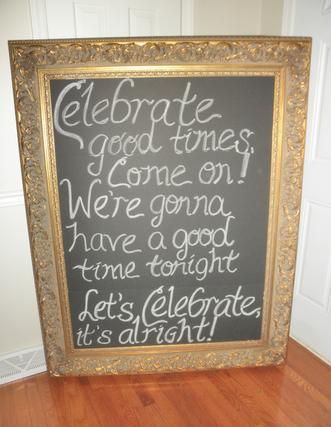 Celebrate
good times,
Come on!
We're gonna
have a good
time tonight
Let's Celebrate,
it's alright!